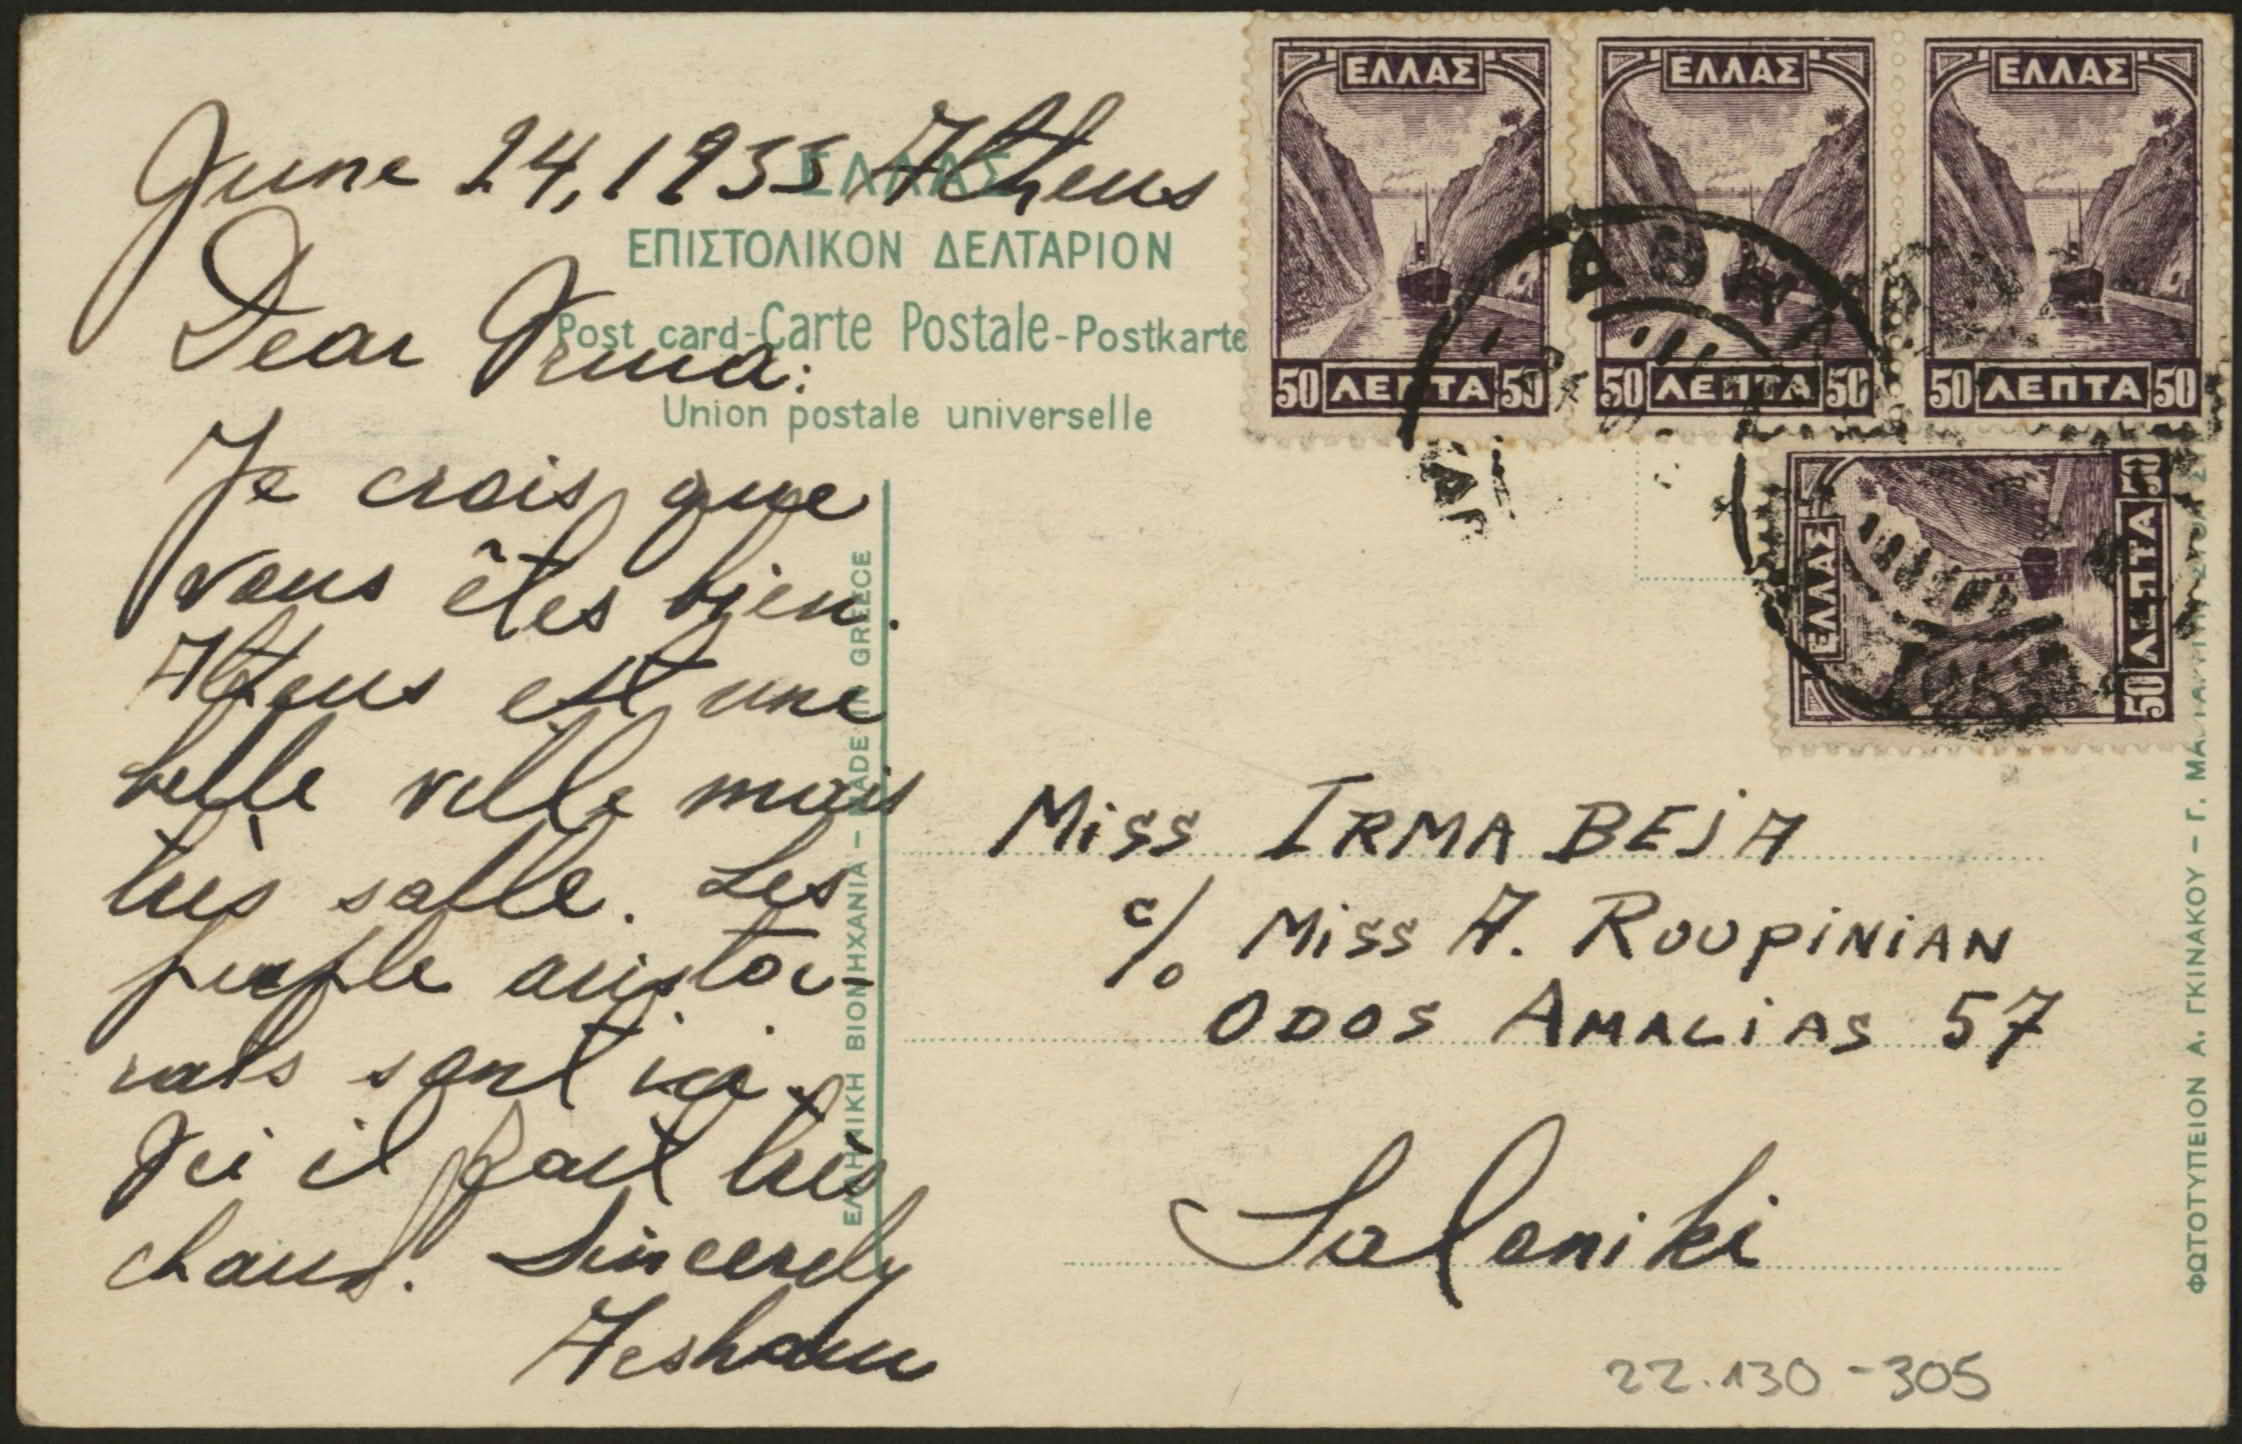 June 24, 1933 Athens
Dear Irma:
Je crois que
vous êtes bien.
Athens est une
belle ville mais
très salle. Les
peuple aristoc-
rats sont ici.
Ici il fait très
chaud. Sincerely
ΕΛΛΑΣ
ΕΠΙΣΤΟΛΙΚΟΝ ΔΕΛΤΑΡΙΟΝ
Post card-Carte Postale-Postkarte
Union postale universelle
ΕΛΛΗΝΙΚΗ ΒΙΟΜΗΧΑΝΙΑ – MADE IN GREECE
ΕΛΛΑΣ
50 ΛΕΠΤΑ 50
ΕΛΛΑΣ
50 ΛΕΠΤΑ 50
ΕΛΛΑΣ
50 ΛΕΠΤΑ 50
ΕΛΛΑΣ
50 ΛΕΠΤΑ 50
Miss IRMA BEJA
c/o Miss A. ROUPINIAN
ODOS AMALIAS 57
Saloniki
22.130-305
ΦΩΤΟΤΥΠΕΙΟΝ Α. ΓΚΙΝΑΚΟΥ – Γ.